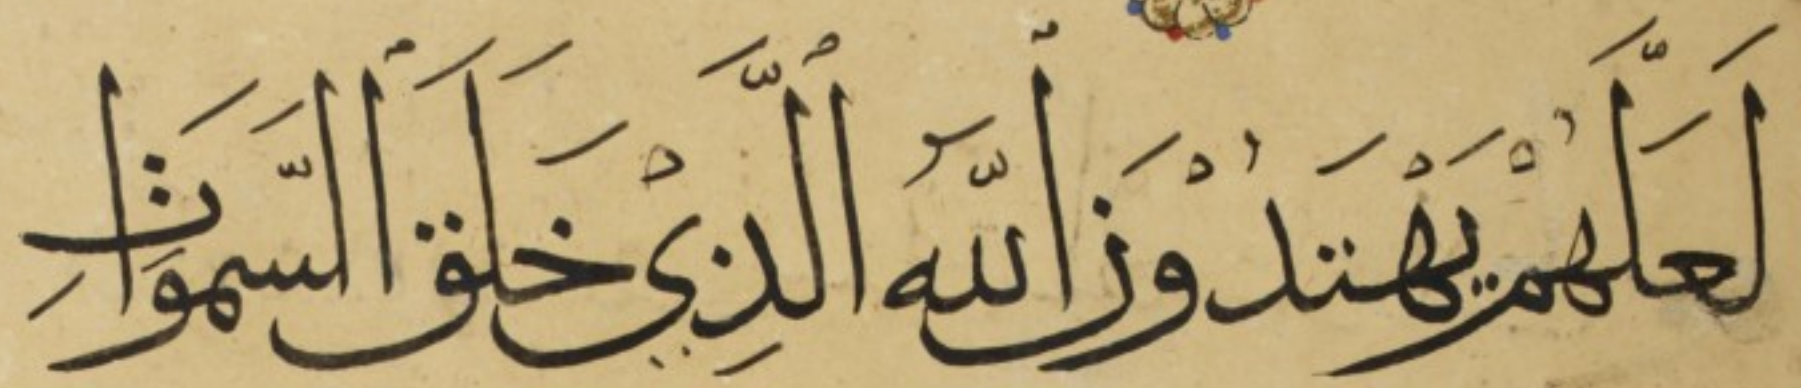 لَعَلَّهُمْ يَهْتَدُوْنَ ٱللَّهُ ٱلَّذِيْ خَلَقَ ٱلسَّمَوَاتِ